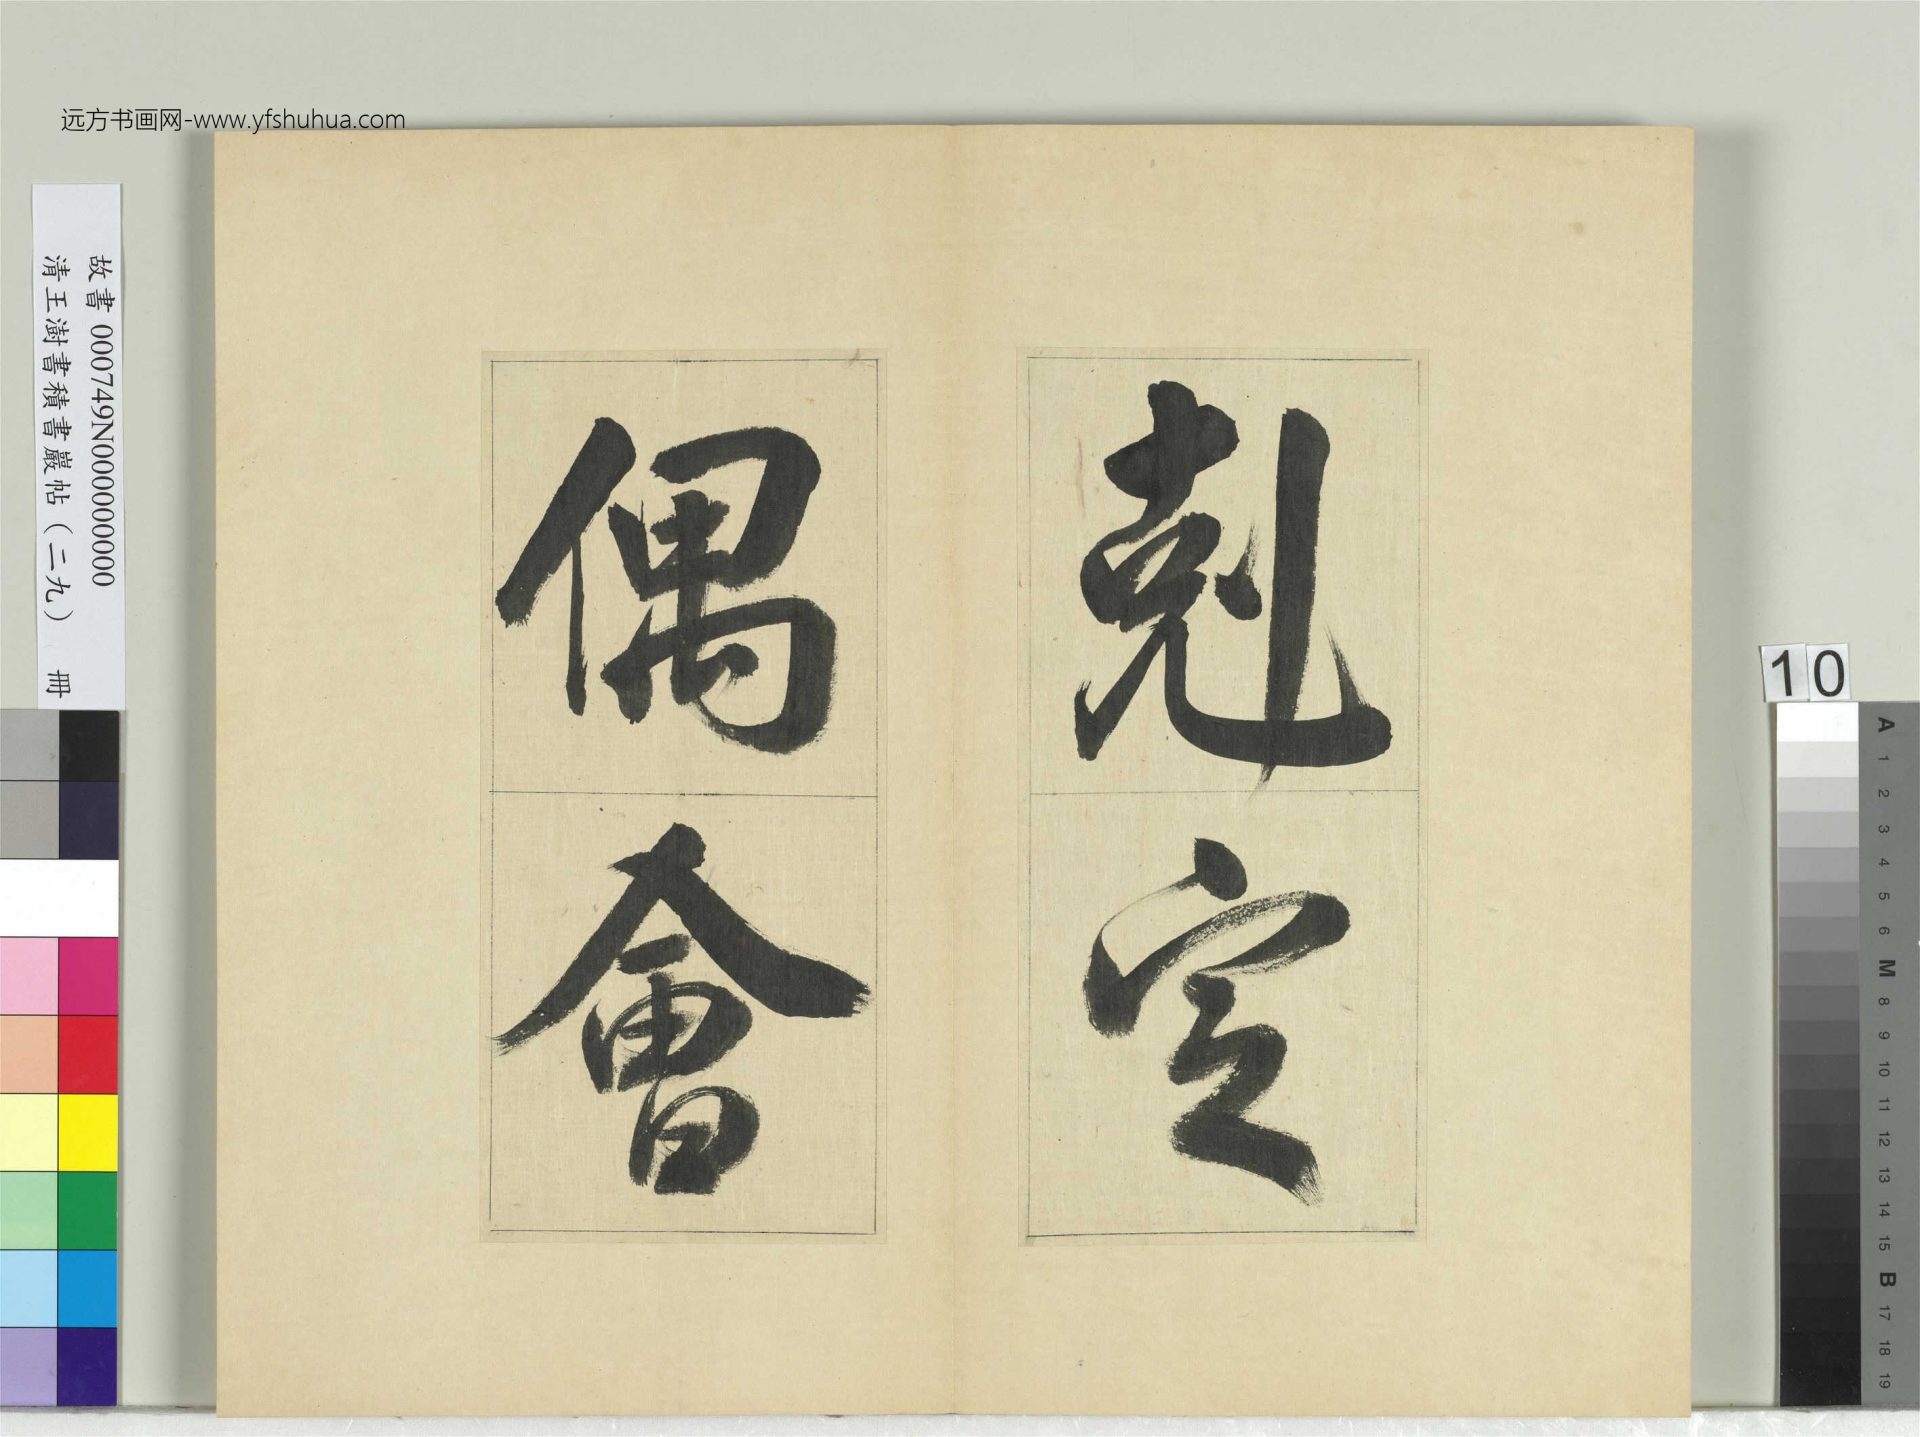 远方书画网-www.yfshuhua.com
故書 000749N000000000
清王澍書積書巖帖（二九） 冊
剋定
偶會
10
A
1
2
3
4
5
6
M
8
9
10
11
12
13
14
15
B
17
18
19